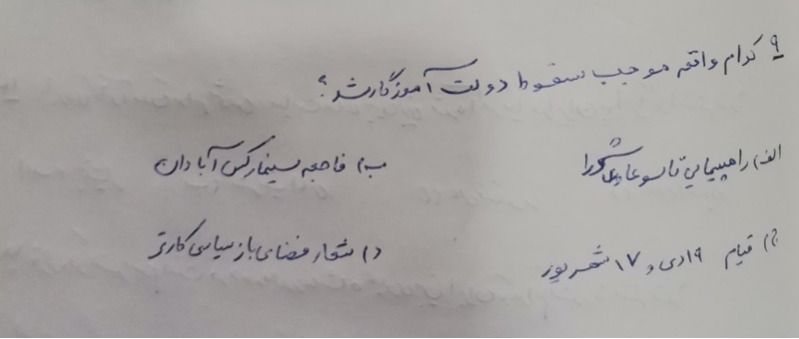 ۹ کدام واقعه موجب سقوط دولت آموزگار شد؟
الف) راهپیمایی تاسوعا و عاشورا ب) فاجعه سینما رکس آبادان
ج) قیام ۱۹ دی و ۱۷ شهریور د) شعار فضای باز سیاسی کارتر